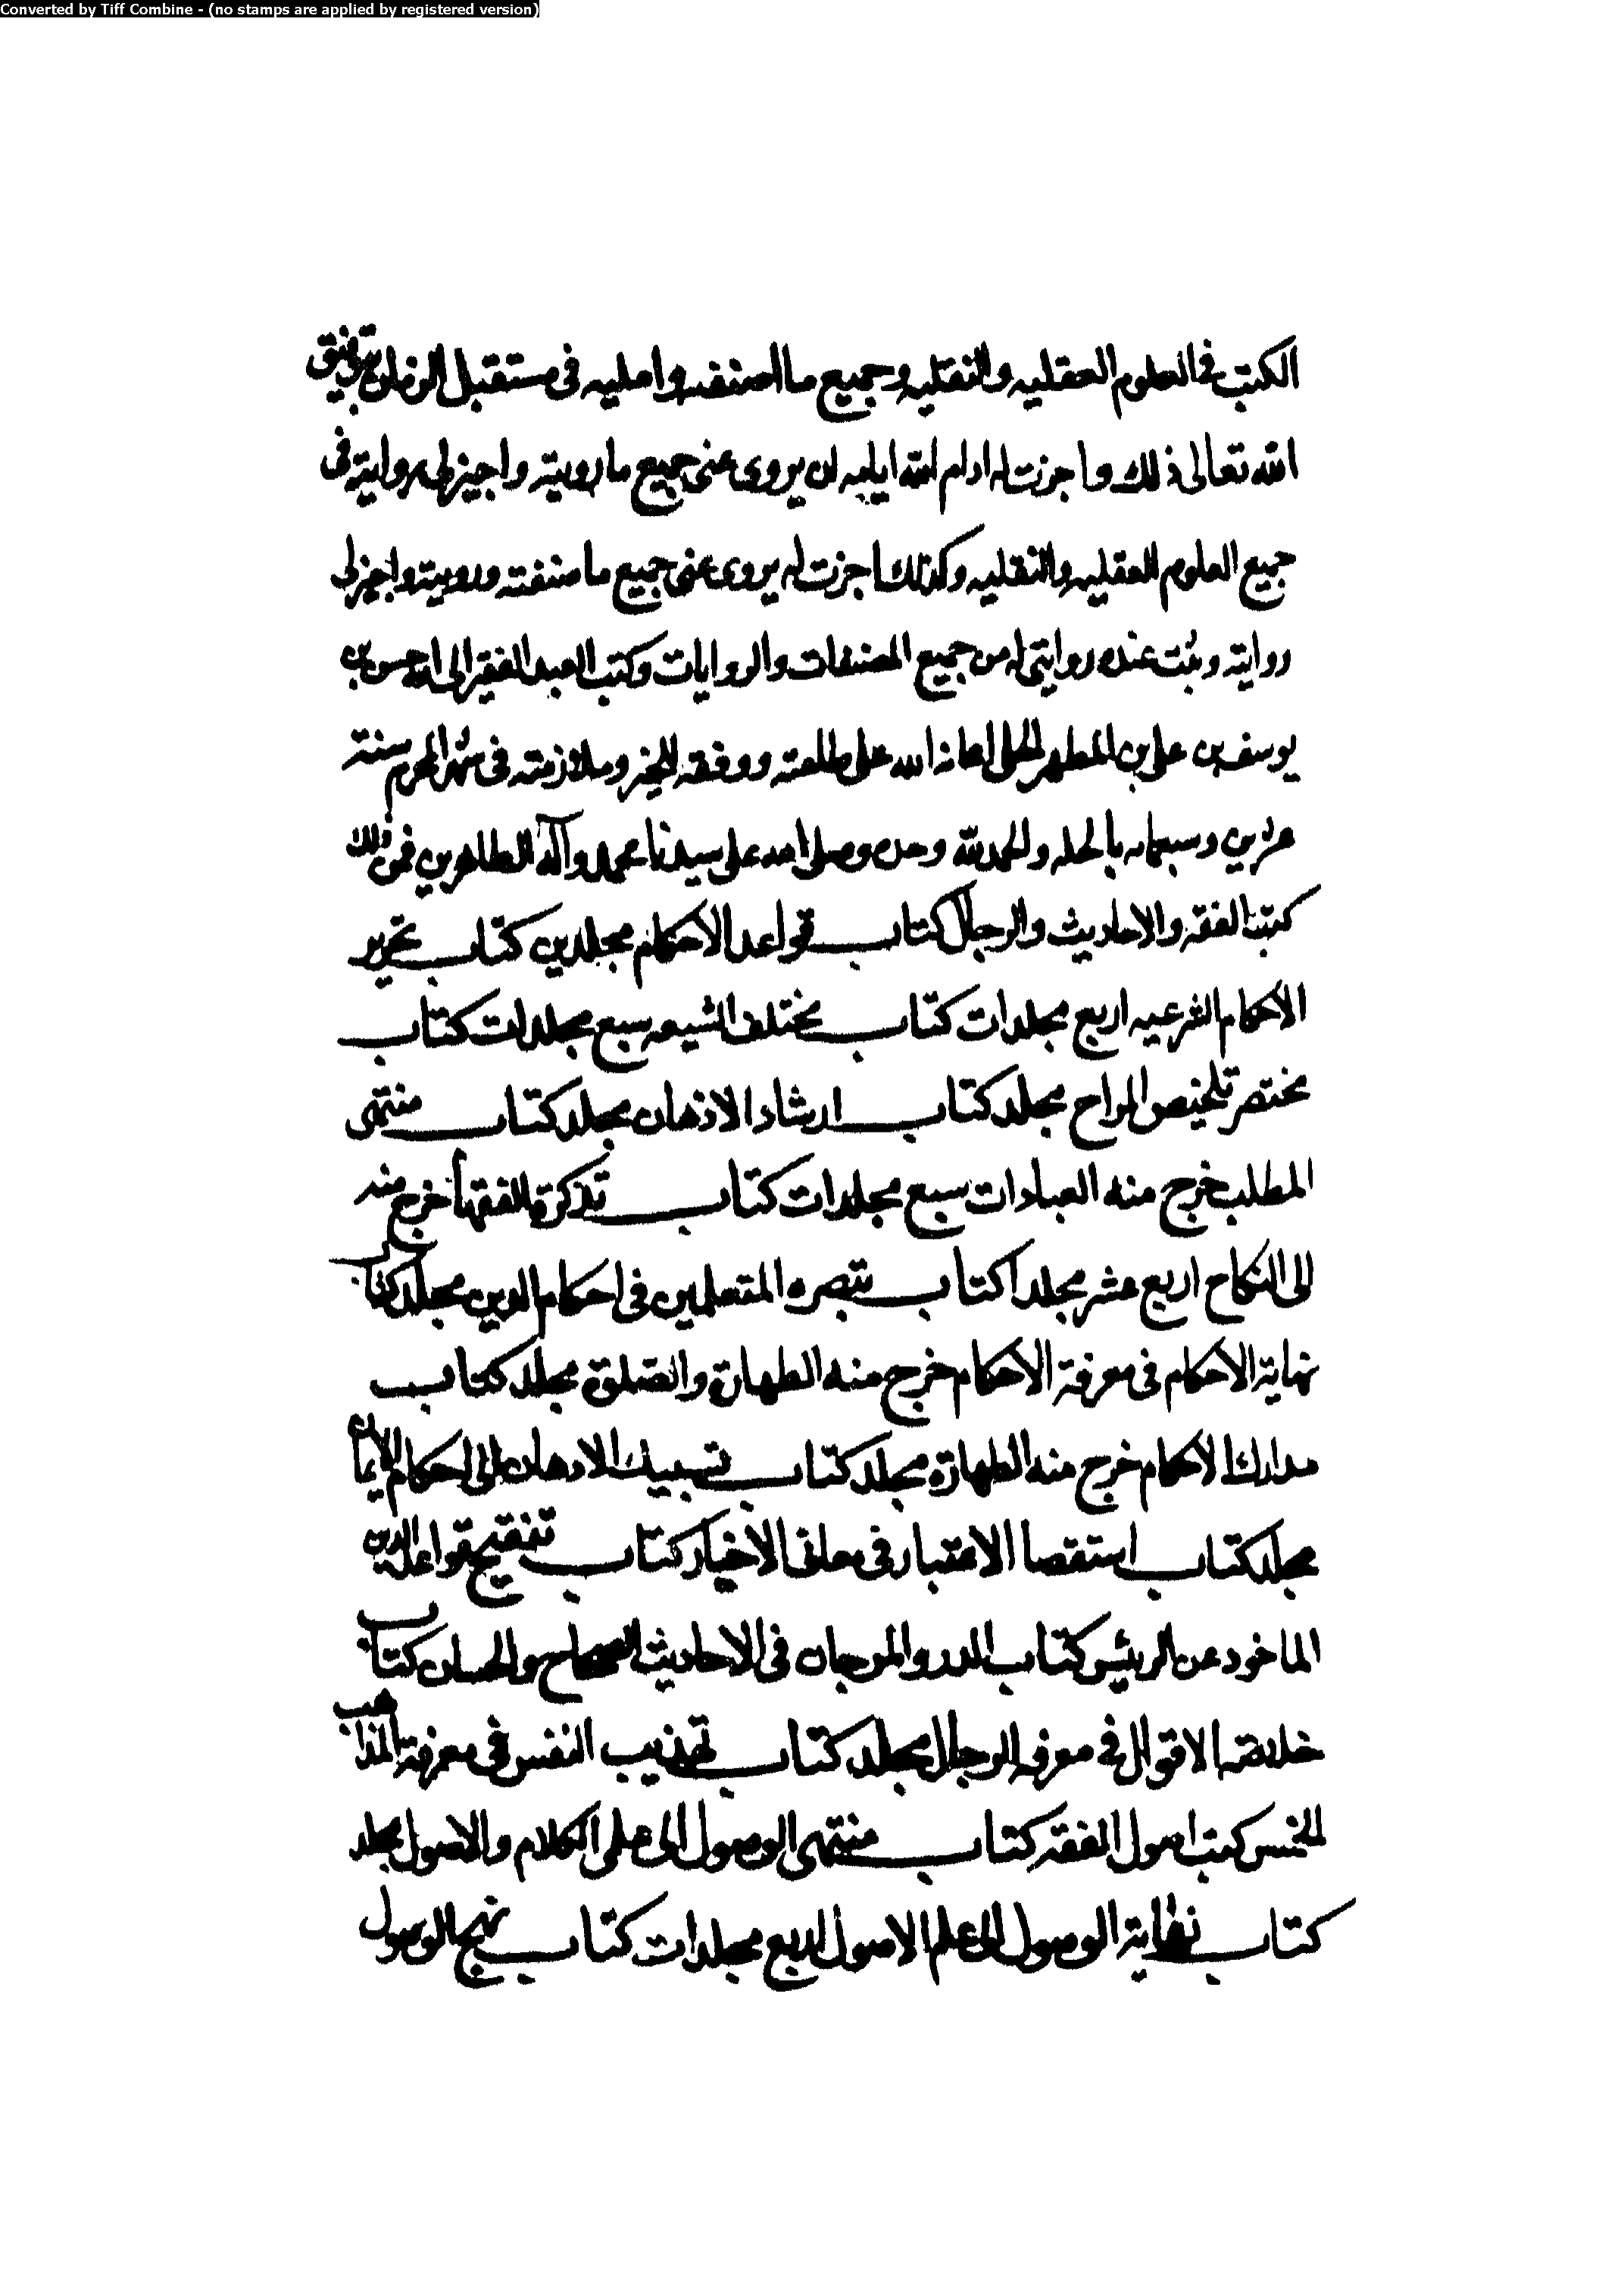 Converted by Tiff Combine - (no stamps are applied by registered version)
الكتب فى العلوم العقليه والنقليه وجميع ما اصنفه وامليه فى مستقبل الزمان بتوفيق
الله تعالى ذلك واجزت له ادام الله ايامه ان يروى عنى جميع ما رويته واجيز لى روايته فى
جميع العلوم العقليه والنقليه وكذلك اجزت له يروى عنى جميع ما صنفته ورويته واجيز لى
روايته وثبت عنده روايتى له من جميع المصنفات والروايات وكتب العبد الفقير الى الله حسن بن
يوسف بن على بن المطهر الحلى اعانه الله على طاعته ووفقه للخير وملازمته فى شهر المحرم سنة
عشرين وسبعمايه بالحله والحمد لله وحده وصلى الله على سيدنا محمد وآله الطاهرين فمن ذلك
كتب الفقه والاحاديث والرجال كتاب قواعد الاحكام مجلدين كتاب تحرير
الاحكام الشرعيه اربع مجلدات كتاب مختلف الشيعه سبع مجلدات كتاب
مختصر تلخيص المراح مجلد كتاب ارشاد الاذهان مجلد كتاب منتهى
المطلب خرج منه العبادات سبع مجلدات كتاب تذكرة الفقهأ خرج منه
الى النكاح اربع عشر مجلدا كتاب تبصره المتعلمين فى احكام الدين مجلد كتاب
نهاية الاحكام فى معرفة الاحكام خرج منه الطهارة والصلوة مجلد كتاب
مدارك الاحكام خرج منه الطهارة مجلد كتاب تسبيك الاذهان الى احكام الايمان
مجلد كتاب استقصا الاعتبار فى معانى الاخبار كتاب تنقيح قواعد الدين
الماخود عن الرئيس كتاب الدر والمرجان فى الاحاديث الصحاح والحسان كتاب
خلاصة الاقوال فى معرفه الرجال مجلد كتاب تهذيب النفس فى معرفة المذاهب
الخمس كتب اصول الفقه كتاب منتهى الوصول الى علمى الكلام والاصول مجلد
كتاب نهاية الوصول الى علم الاصول اربع مجلدات كتاب نهج الوصول